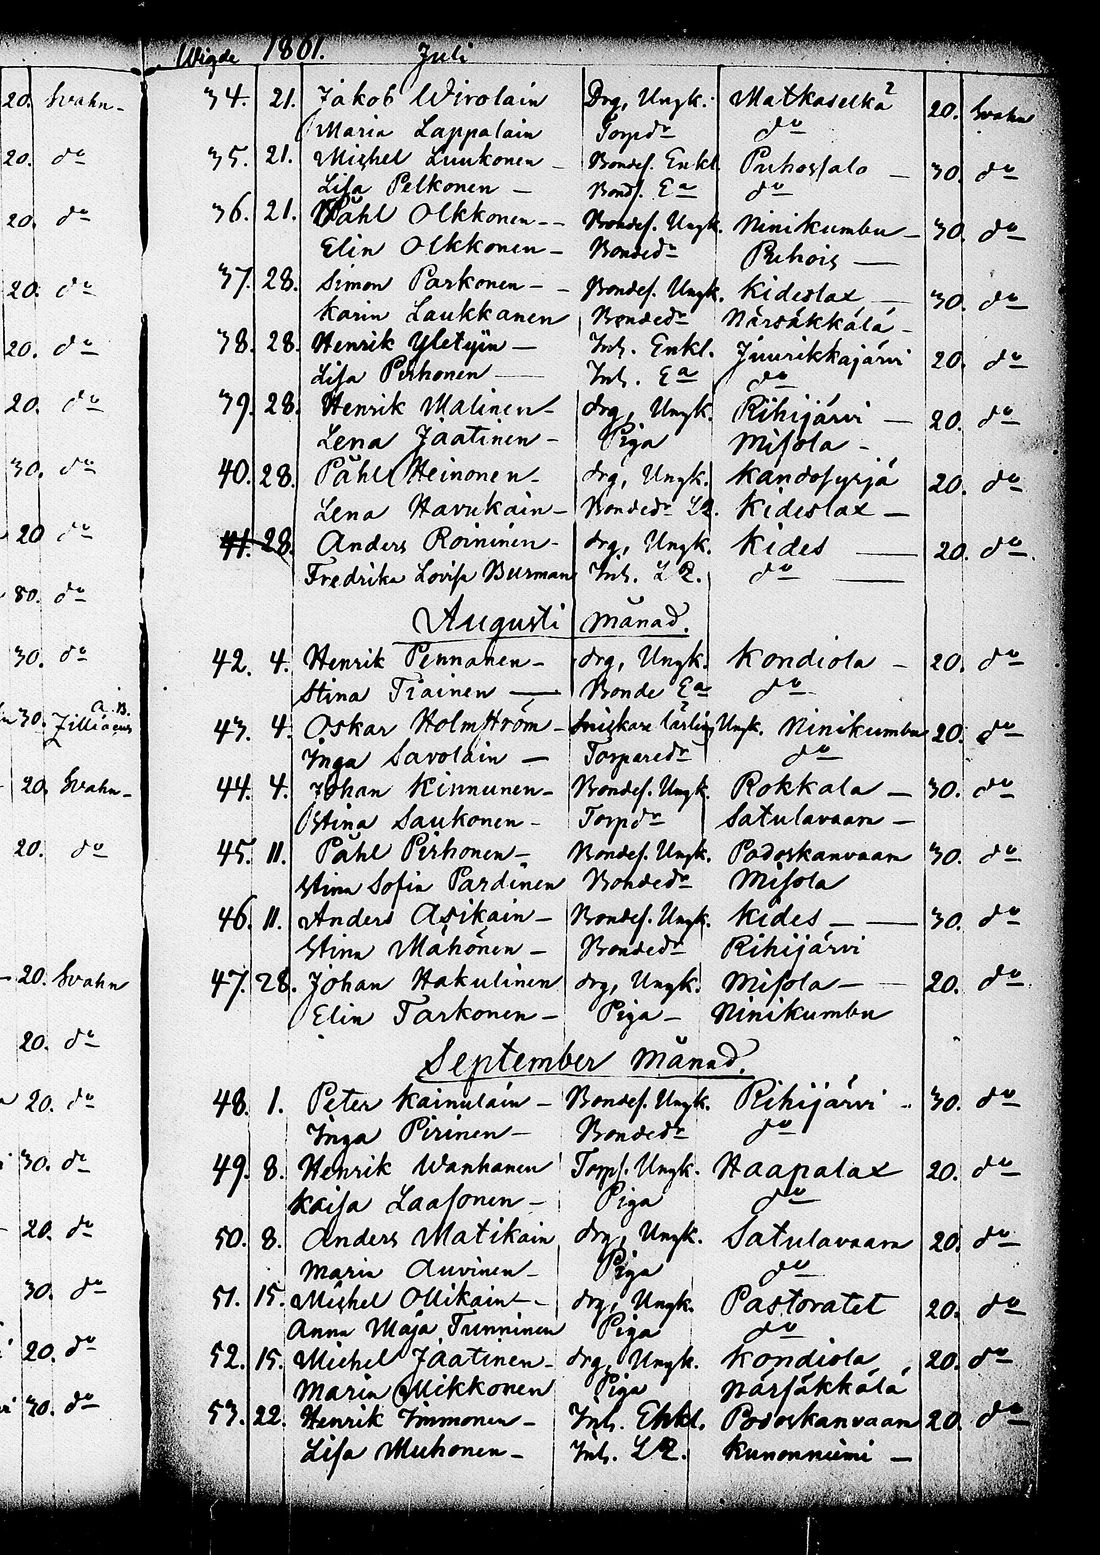 Wigde 1861. Juli
34. 21. Jakob Wirolain Drg, Ungk. Matkaselkä 20. Svahn
Maria Lappalain Torpdr do
35. 21. Mishel Luukonen - Bondes. Enkl. Puhossalo - 30. do
Lisa Pelkonen - Bond. Ea do
36. 21. Påhl Olkkonen - - Bondes. Ungk. Ninikumbu - 30. do
Elin Olkkonen - Bondedr Puhois -
37. 28. Simon Parkonen - - Bondes. Ungk. Kideslax - 30. do
Karin Laukkanen Bondedr Närsäkkälä -
38. 28. Henrik Yletyin - Inh. Enkl. Juurikkajärvi 20. do
Lisa Pirhonen - Inh. Ea do
39. 28. Henrik Malinen - drg, Ungk. Rihijärvi - 20. do
Lena Jaatinen - Piga Misola -
40. 28. Påhl Heinonen - drg, Ungk. Kandosyrjä 20. do
Lena Havukain - Bondedr LQ. Kideslax -
41. 28. Anders Roininen - drg, Ungk. Kides - 20. do
Fredrika Lovisa Burman Inh. LQ. do -
Augusti månad.
42. 4. Henrik Pennanen - drg, Ungk. Kondiola - 20. do
Stina Tiainen - Bonde Ea do
43. 4. Oskar Holmström - Snizkare lärling Ungk. Ninikumbu 20. do
Inga Savolain - Torparedr do
44. 4. Johan Kinnunen - Bondes. Ungk. Rokkala - 30. do
Stina Saukonen - Torpdr Satulavaara -
45. 11. Påhl Pirhonen - Bondes. Ungk. Podoskanvaara 30. do
Stina Sofia Pardinen Bondedr Misola
46. 11. Anders Asikain - Bondes. Ungk. Kides - - 30. do
Stina Mähönen - Bondedr Rihijärvi
47. 28. Johan Hakulinen drg, Ungk. Misola - - 20. do
Elin Tarkonen - Piga - Ninikumbu
September månad.
48. 1. Peter Kainulain - Bondes. Ungk. Rihijärvi - 30. do
Inga Pirinen - Bondedr do
49. 8. Henrik Wanhanen Torps. Ungk. Haapalax 20. do
Kaisa Laasonen - Piga do
50. 8. Anders Matikain drg, Ungk. Satulavaara 20. do
Maria Auvinen - Piga do
51. 15. Mishel Ollikain - drg, Ungk. Pastoratet 20. do
Anna Maja Tunninen Piga do
52. 15. Michel Jaatinen - drg, Ungk. Kondiola 20. do
Maria Mikkonen Piga Närsäkkälä
53. 22. Henrik Immonen - Inh. Enkl. Podoskanvaara 20. do
Lisa Muhonen - Inh. LQ. Kunonniemi -
20. Svahn -
20. do
20. do
20. do
20. do
20. do
30. do
20 do
80. do
30. do
30. A. B. Zilliacus
20. Svahn -
20. do
20. Svahn
20. do
20. do
30. do
20. do
30. do
20. do
30. do